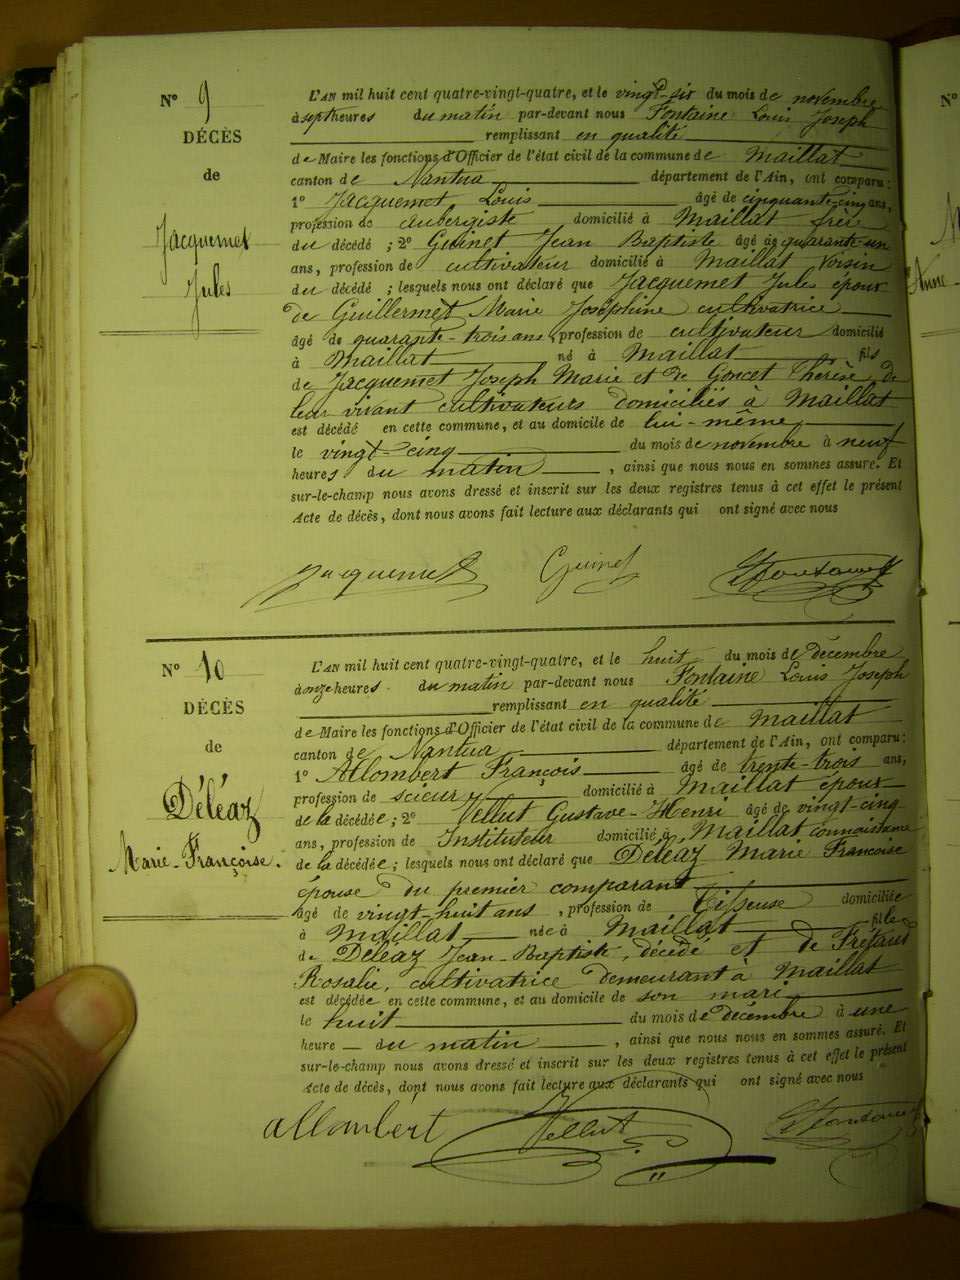 N° 9
DÉCÈS
de
Jacquemet
Jules
L'AN mil huit cent quatre-vingt-quatre, et le vingt-six du mois de novembre
à sept heures du matin par-devant nous Fontaine Louis Joseph
remplissant en qualité
de Maire les fonctions d'Officier de l'état civil de la commune de Maillat
canton de Nantua département de l'Ain, ont comparu:
1° Jacquemet Louis âgé de cinquante-cinq ans,
profession de aubergiste domicilié à Maillat frère
du décédé ; 2° Guinet Jean Baptiste âgé de quarante-un
ans, profession de cultivateur domicilié à Maillat voisin
du décédé ; lesquels nous ont déclaré que Jacquemet Jules époux
de Guillermet Marie Joséphine cultivatrice
âgé de quarante-trois ans, profession de cultivateur domicilié
à Maillat né à Maillat fils
de Jacquemet Joseph Marie et de Goncet Thérèse de
leur vivant cultivateurs domiciliés à Maillat
est décédé en cette commune, et au domicile de lui-même
le vingt-cinq du mois de novembre à neuf
heures du matin , ainsi que nous nous en sommes assuré. Et
sur-le-champ nous avons dressé et inscrit sur les deux registres tenus à cet effet le présent
Acte de décès, dont nous avons fait lecture aux déclarants qui ont signé avec nous
Jacquemet Guinet LFontaine
N° 10
DÉCÈS
de
Déléaz
Marie-Françoise.
L'AN mil huit cent quatre-vingt-quatre, et le huit du mois de décembre
à onze heures du matin par-devant nous Fontaine Louis Joseph
remplissant en qualité
de Maire les fonctions d'Officier de l'état civil de la commune de Maillat
canton de Nantua département de l'Ain, ont comparu:
1° Allombert François âgé de trente-trois ans,
profession de scieur domicilié à Maillat époux
de la décédée ; 2° Vellut Gustave-Henri âgé de vingt-cinq
ans, profession de Instituteur domicilié à Maillat connaissance
de la décédée ; lesquels nous ont déclaré que Déléaz Marie Françoise
épouse du premier comparant
âgé de vingt-huit ans , profession de Tisseuse domiciliée
à Maillat née à Maillat fille
de Déléaz Jean-Baptiste, décédé et de
Rosalie, cultivatrice demeurant à Maillat
est décédée en cette commune, et au domicile de son mari
le huit du mois de décembre à une
heure du matin , ainsi que nous nous en sommes assuré. Et
sur-le-champ nous avons dressé et inscrit sur les deux registres tenus à cet effet le présent
Acte de décès, dont nous avons fait lecture aux déclarants qui ont signé avec nous
allombert Vellut LFontaine
N°
Anne